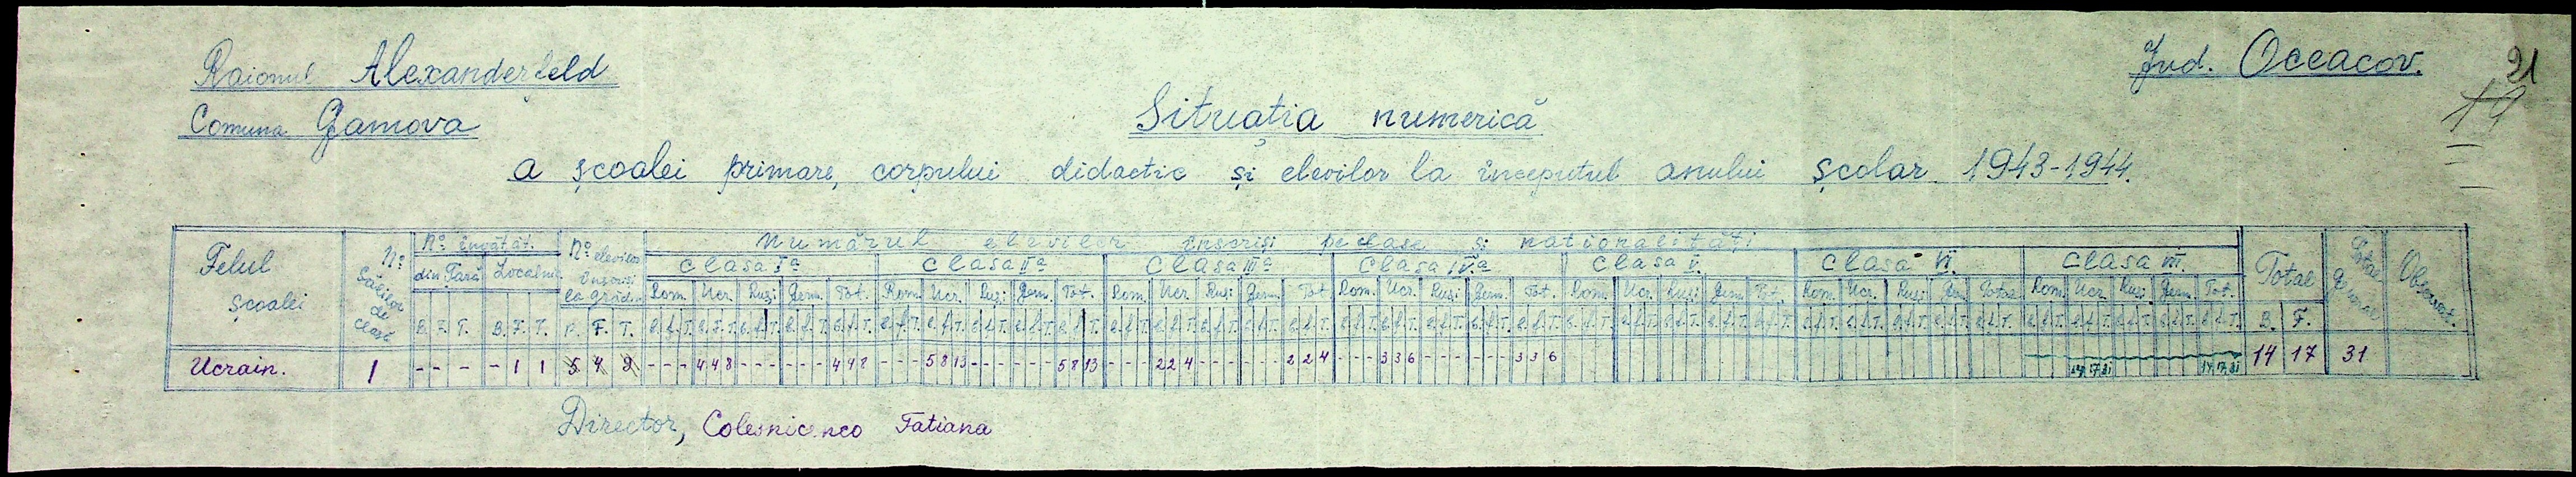 Raionul Alexanderfeld
Jud. Oceacov.
21
19
Comuna Gamova
Situația numerică
a școalei primare, corpului didactic și elevilor la începutul anului școlar 1943-1944.
Felul școalei
No. Sălilor de clasă
No. învățăt.
din Țară Localnici
B. F. T. B. F. T.
No. elevilor înscriși la grăd.
B. F. T.
Numărul elevilor înscriși pe clase și naționalități
Clasa Iª Clasa IIª Clasa IIIª Clasa IVª Clasa V. Clasa VI. Clasa VII.
Rom. Ucr. Ruși Germ. Tot. Rom. Ucr. Ruși Germ. Tot. Rom. Ucr. Ruși Germ. Tot. Rom. Ucr. Ruși Germ. Tot. Rom. Ucr. Ruși Germ. Tot. Rom. Ucr. Ruși Ger. Total Rom. Ucr. Ruși Germ. Tot.
Total
B. F.
Total general
Observat.
Ucrain. 1 - - - - 1 1 5 4 9 - - - 4 4 8 - - - - - - 4 4 8 - - - 5 8 13 - - - - - - 5 8 13 - - - 2 2 4 - - - - - - 2 2 4 - - - 3 3 6 - - - - - - 3 3 6 14 17 31 14 17 31 14 17 31
Director, Colesnicenco Tatiana